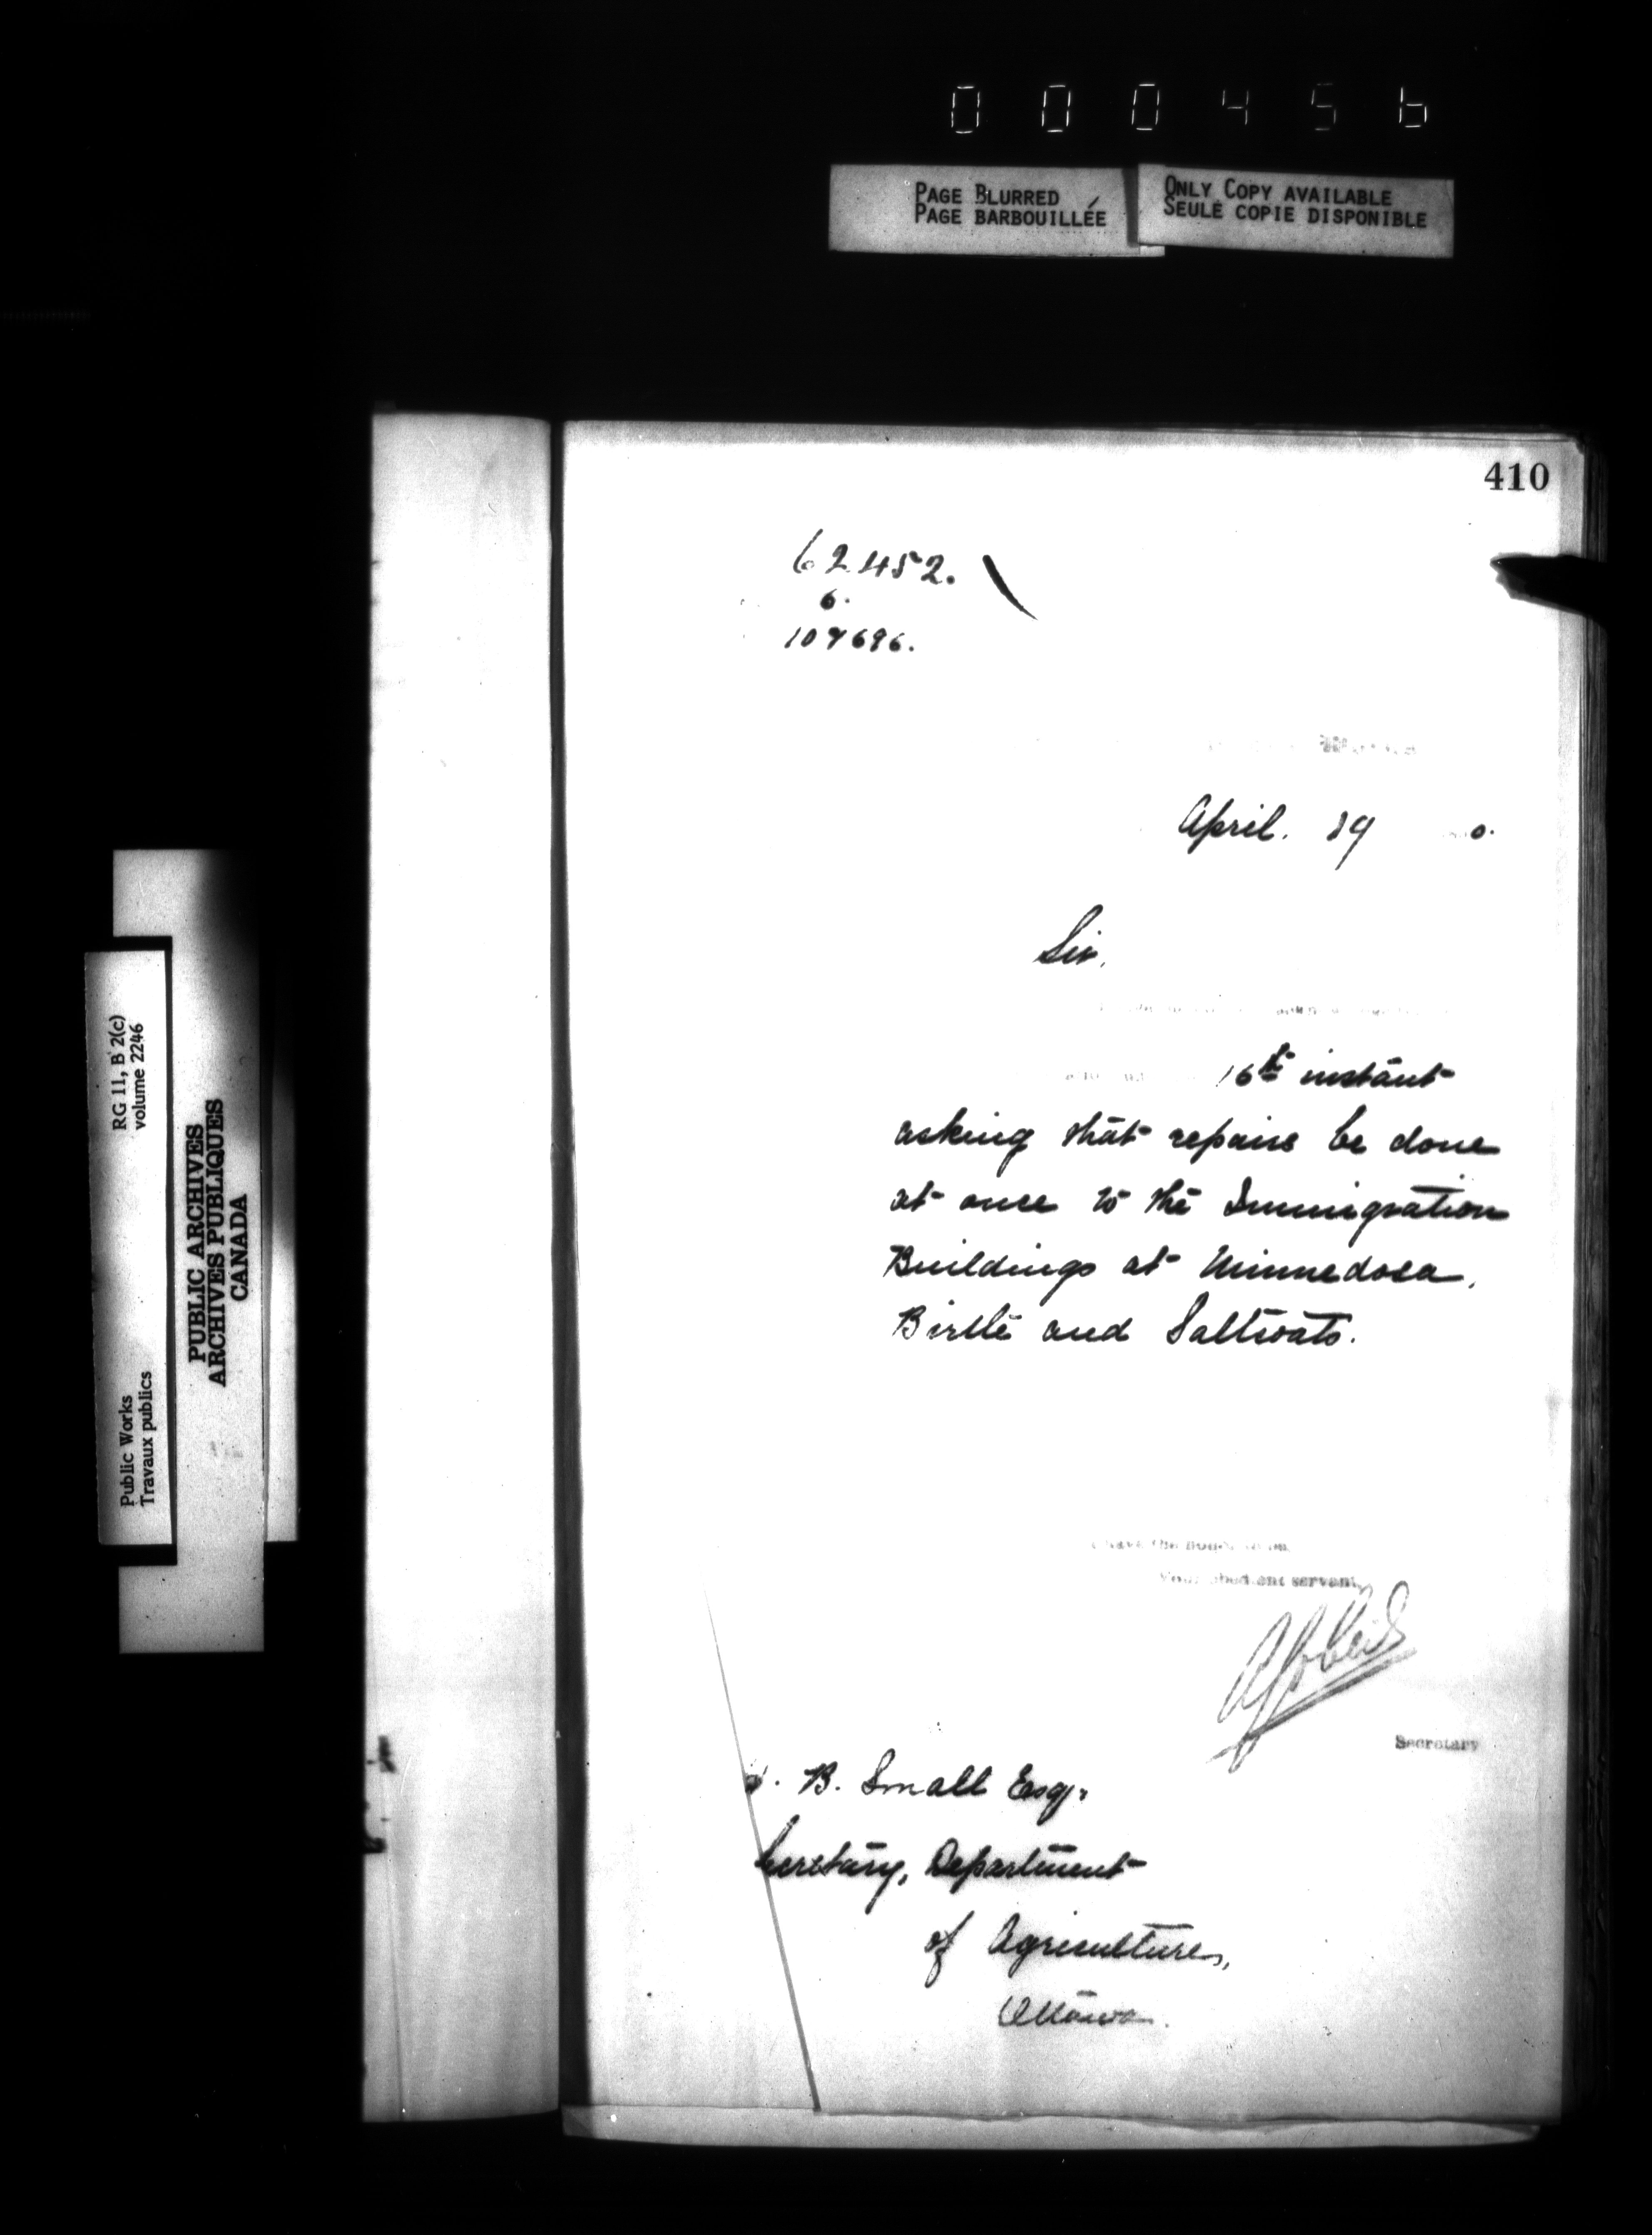 000456
PAGE BLURRED
PAGE BARBOUILLÉE
ONLY COPY AVAILABLE
SEULE COPIE DISPONIBLE
410
62452.
6.
107696.
April. 19 0.
Sir,
16th instant
asking that repairs be done
at once to the Immigration
Buildings at Minnedosa,
Birtle and Saltcoats.
have the honor to be
Your obedient servant,
Secretary
B. Small Esq,
Secretary, Department
of Agriculture,
Ottawa.
RG 11, B 2(c)
volume 2246
Public Works
Travaux publics
PUBLIC ARCHIVES
ARCHIVES PUBLIQUES
CANADA